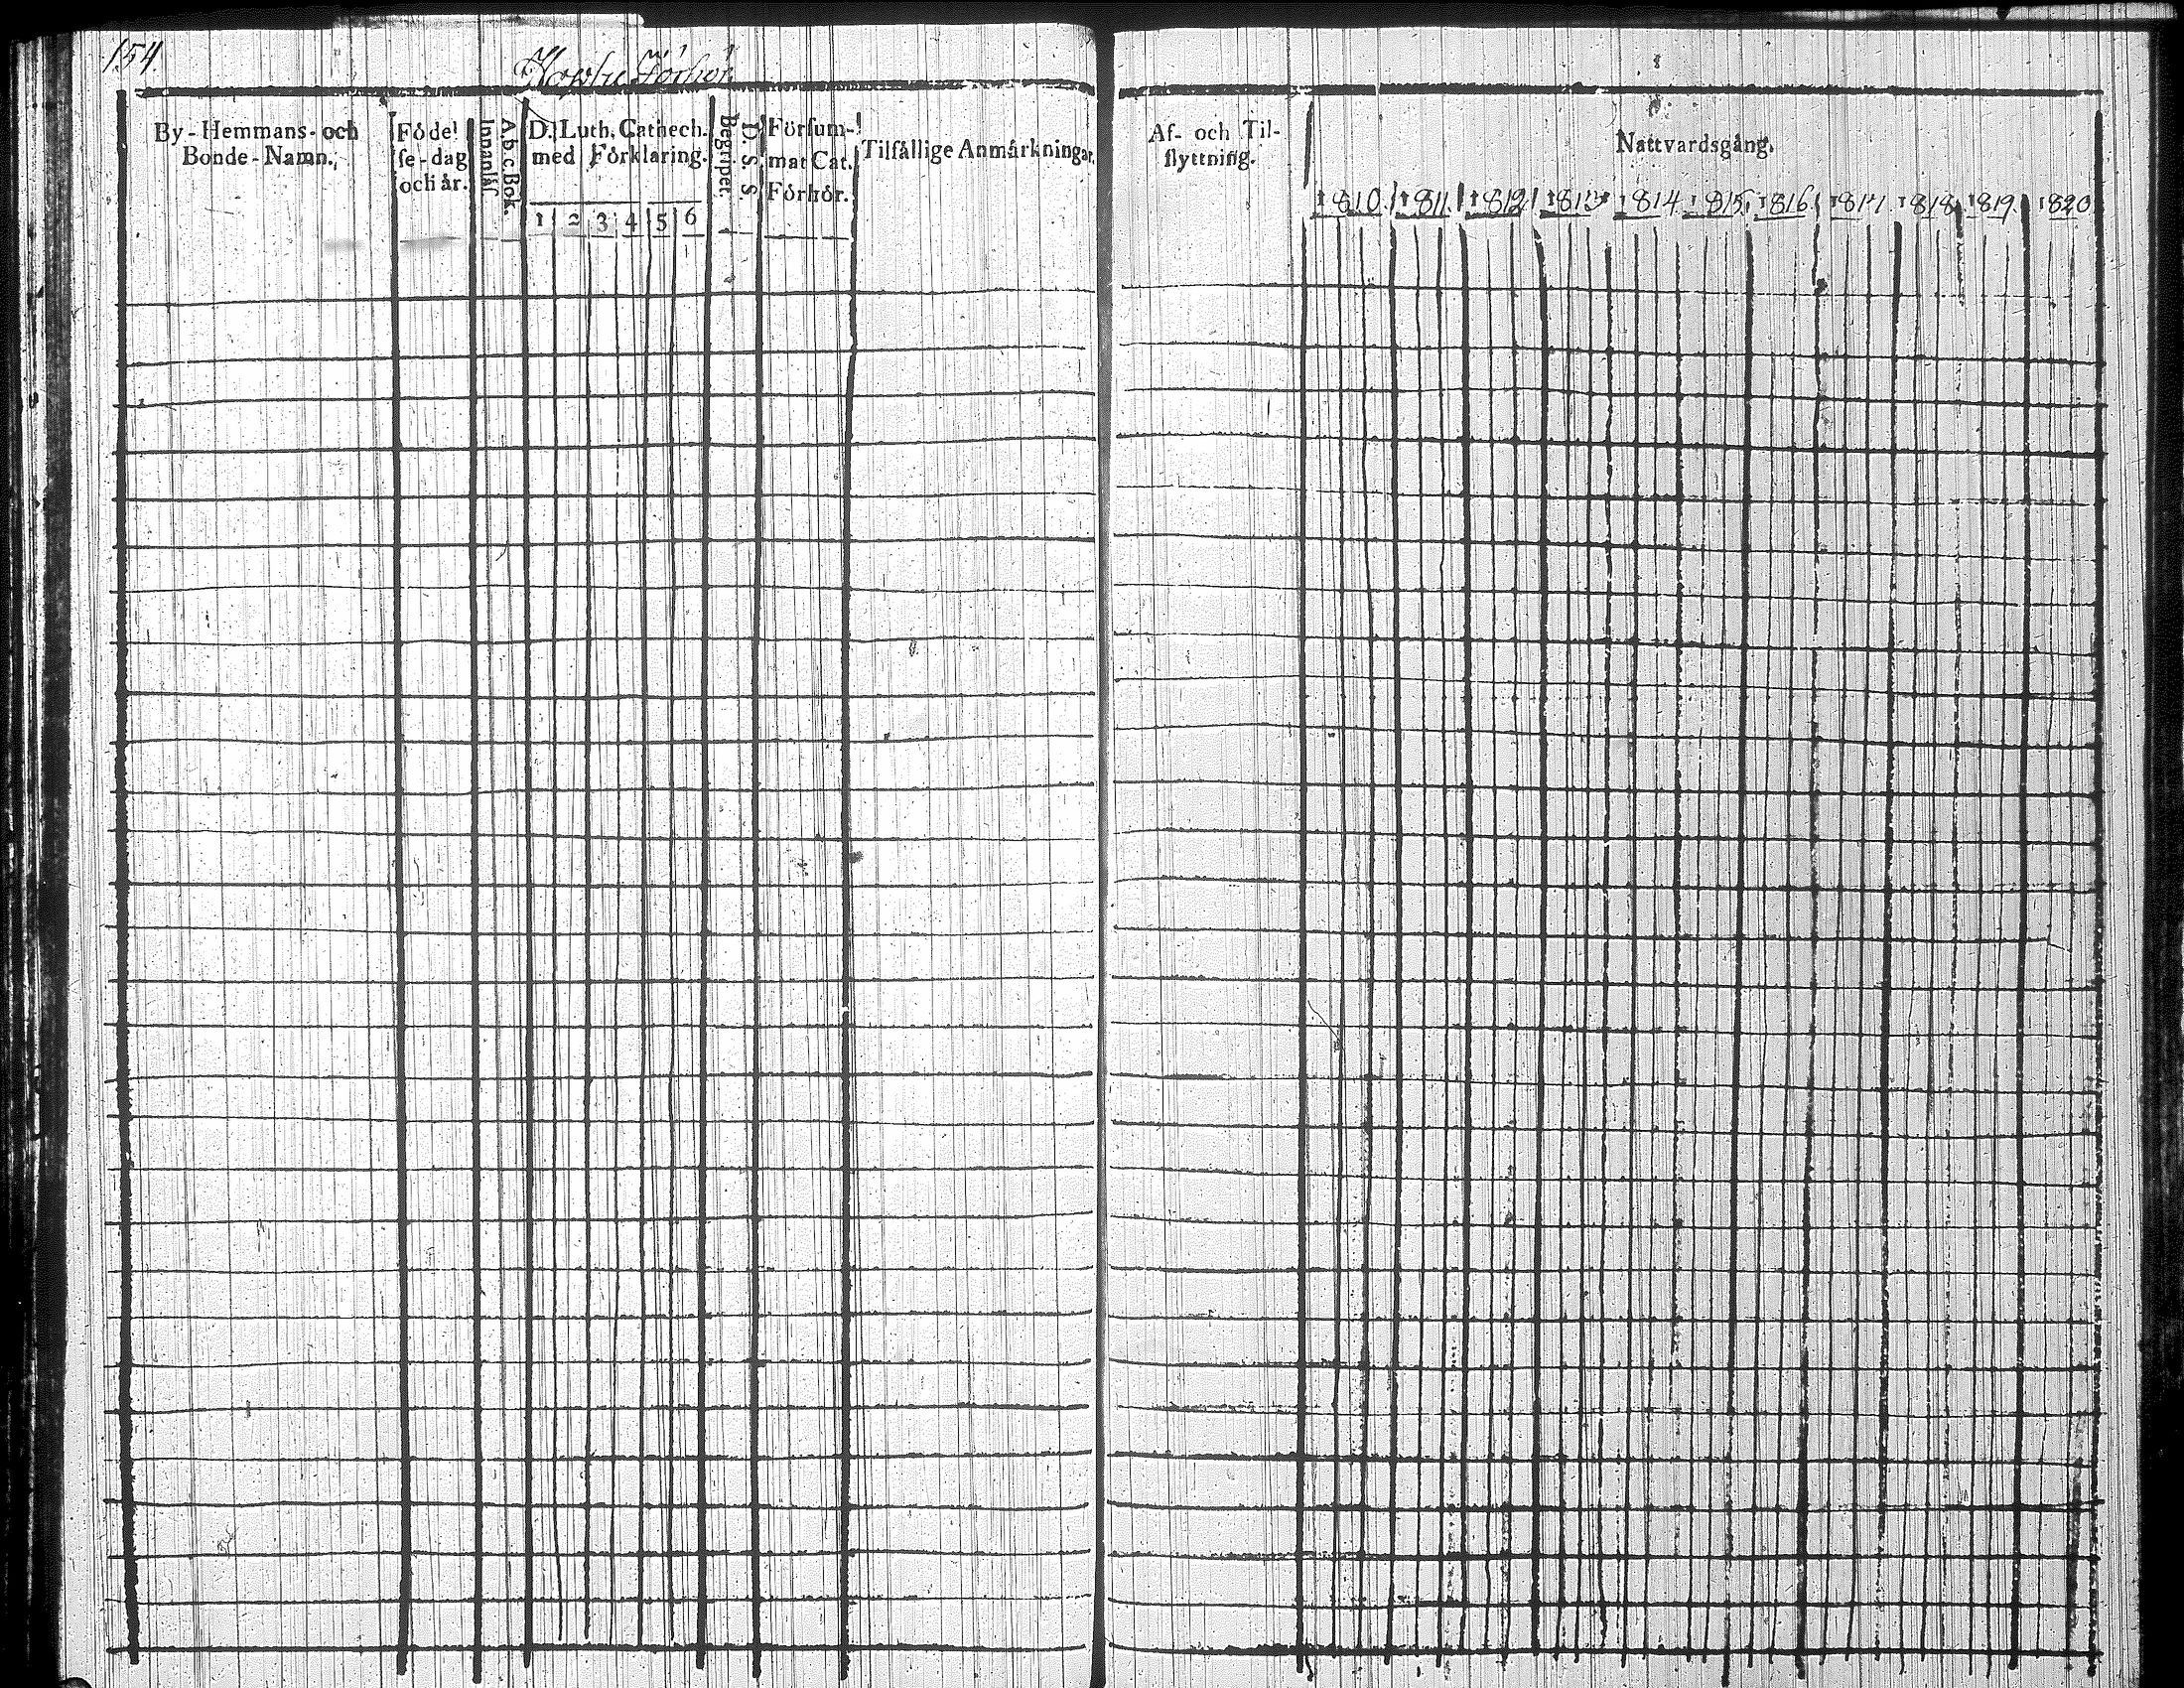 154.
By-Hemmans- och
Bonde-Namn.
Födel
se-dag
och år.
Innanläs.
A.b.c.Bok.
D. Luth. Cathech.
med Förklaring.
1 2 3 4 5 6
Begripet
D. S. S.
Försum-
mat Cat.
Förhör.
Tilfällige Anmärkningar.
Af- och Til-
flyttning.
Nattvardsgång.
1810. 1811. 1812 1813 1814. 1815. 1816. 1817 1818. 1819. 1820